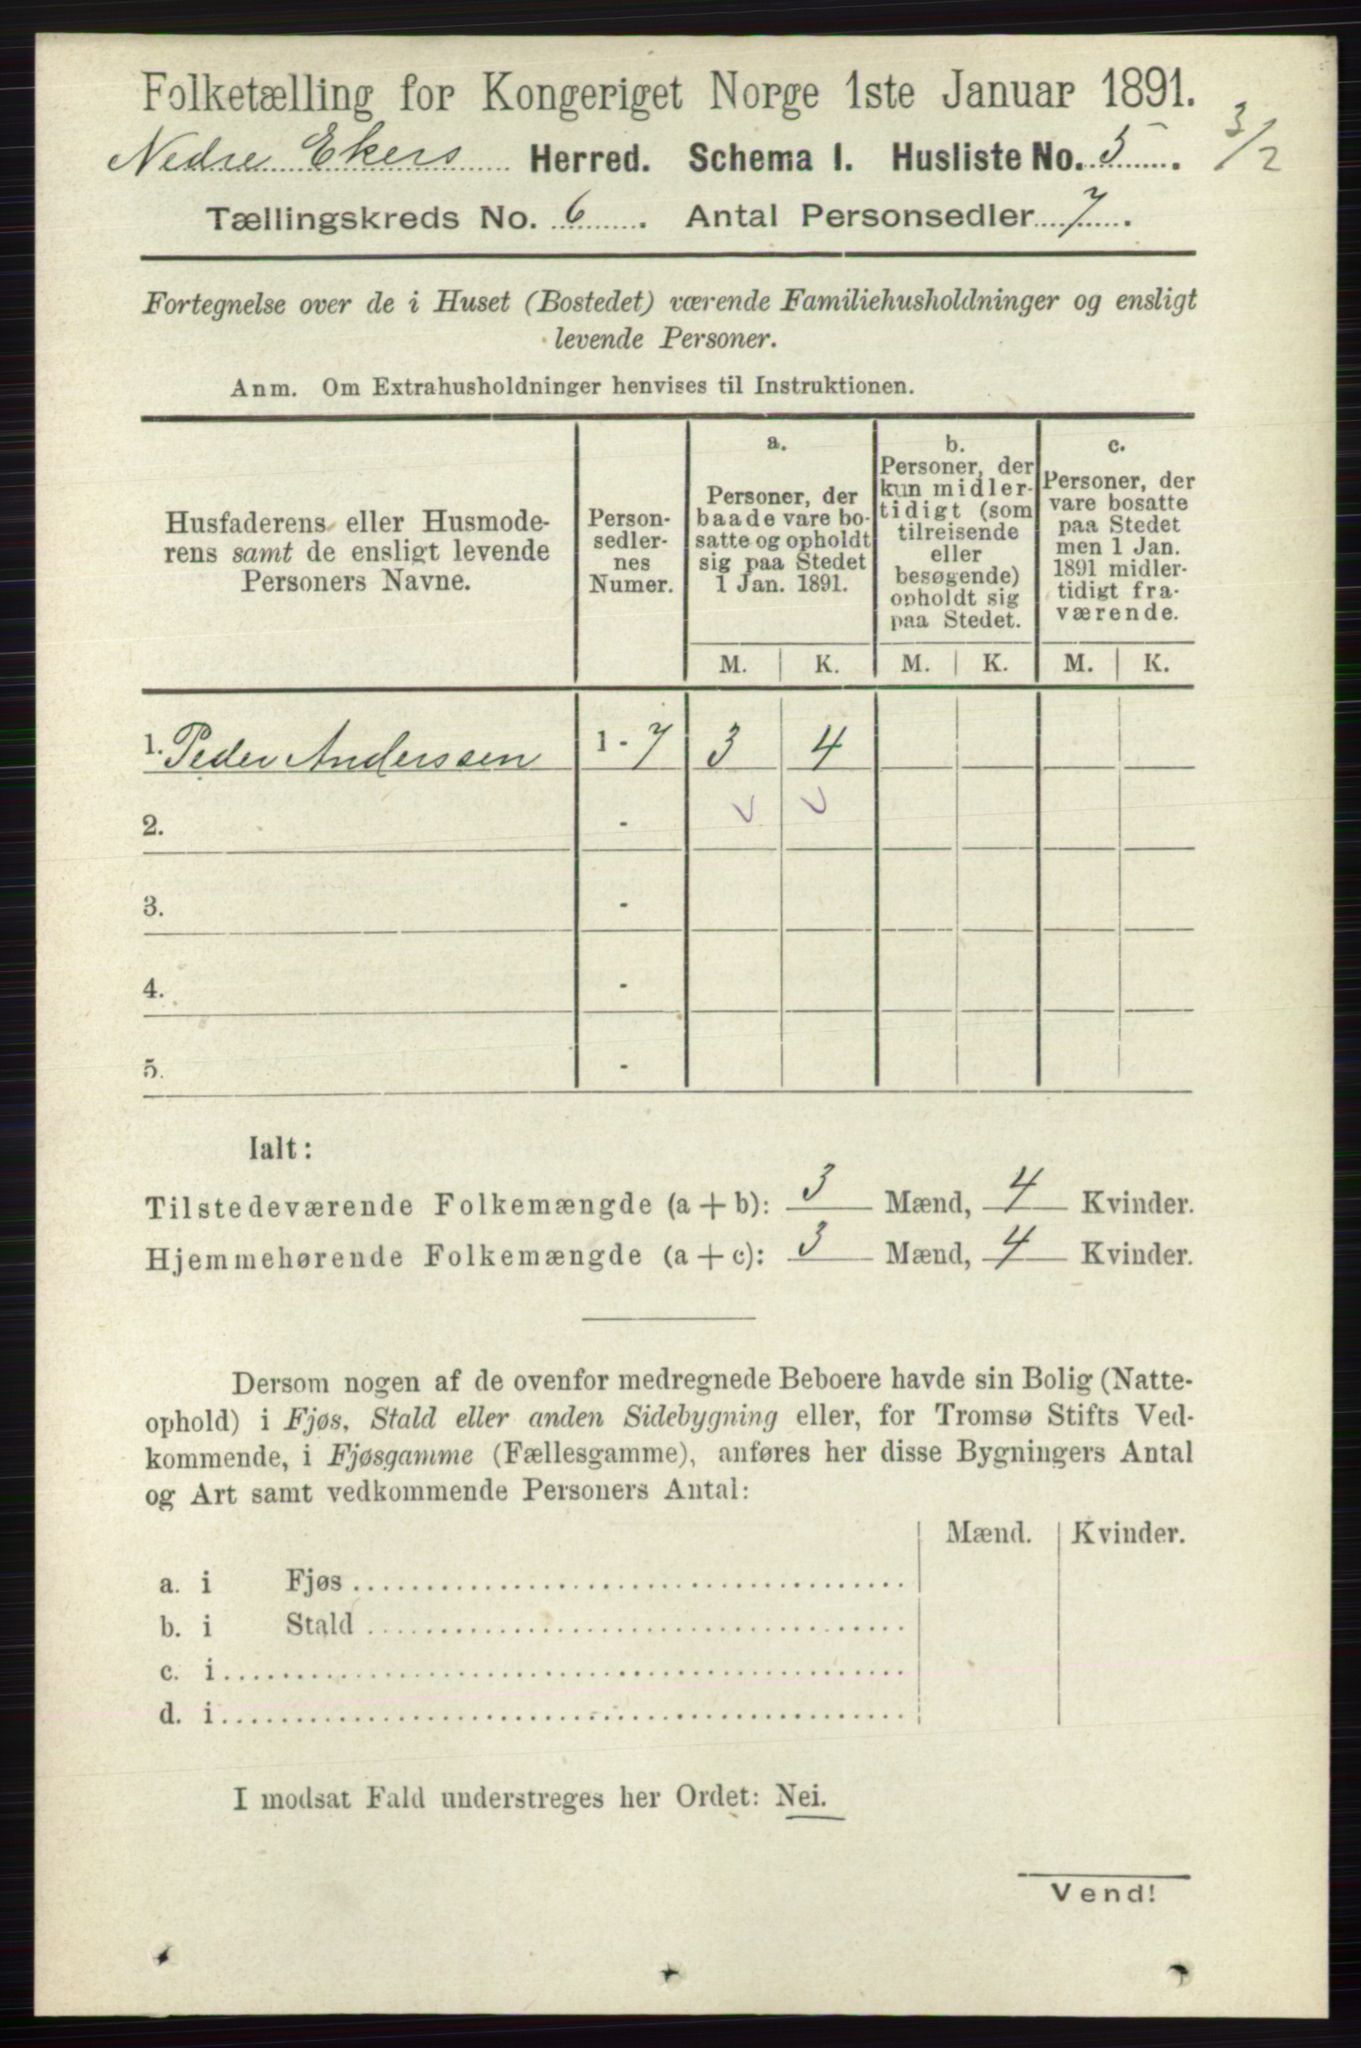 Folketælling for Kongeriget Norge 1ste Januar 1891.
Nedre Ekers Herred. Schema 1. Husliste No. 5. 3/2
Tællingskreds No. 6. Antal Personsedler 7.
Fortegnelse over de i Huset (Bostedet) værende Familiehusholdninger og ensligt
levende Personer.
Anm. Om Extrahusholdninger henvises til Instruktionen.
Husfaderens eller Husmode-
rens samt de ensligt levende
Personers Navne.
Person-
sedler-
nes
Numer.
a.
Personer, der
baade vare bo-
satte og opholdt
sig paa Stedet
1 Jan. 1891.
b.
Personer, der
kun midler-
tidigt (som
tilreisende
eller
besøgende)
opholdt sig
paa Stedet.
c.
Personer, der
vare bosatte
paa Stedet
men 1 Jan.
1891 midler-
tidigt fra-
værende.
M. K. M. K. M. K.
1. Peder Anderssen 1 - 7 3 4
2. -
3. -
4. -
5. -
Ialt:
Tilstedeværende Folkemængde (a + b): 3 Mænd, 4 Kvinder.
Hjemmehørende Folkemængde (a + c): 3 Mænd, 4 Kvinder.
Dersom nogen af de ovenfor medregnede Beboere havde sin Bolig (Natte-
ophold) i Fjøs, Stald eller anden Sidebygning eller, for Tromsø Stifts Ved-
kommende, i Fjøsgamme (Fællesgamme), anføres her disse Bygningers Antal
og Art samt vedkommende Personers Antal:
Mænd. Kvinder.
a. i Fjøs
b. i Stald
c. i
d. i
I modsat Fald understreges her Ordet: Nei.
Vend!